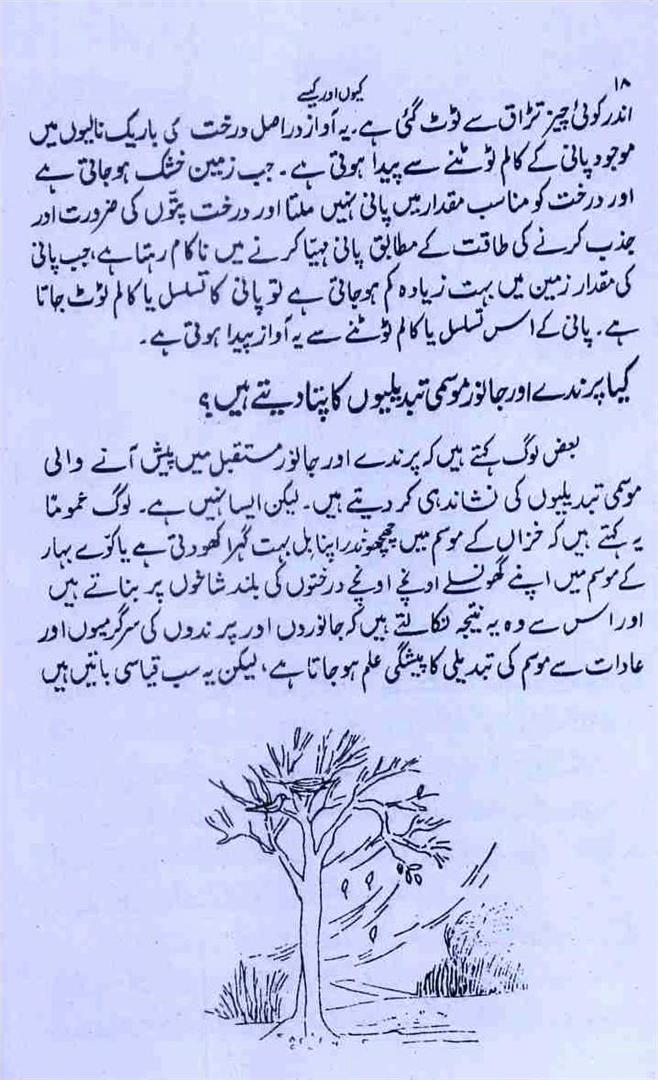 ۱۸
کیوں اور کیسے
اندر کوئی چیز تڑاق سے ٹوٹ گئی ہے۔ یہ آواز دراصل درخت کی باریک نالیوں میں
موجود پانی کے کالم ٹوٹنے سے پیدا ہوتی ہے۔ جب زمین خشک ہوجاتی ہے
اور درخت کو مناسب مقدار میں پانی نہیں ملتا اور درخت پتّوں کی ضرورت اور
جذب کرنے کی طاقت کے مطابق پانی مہیّا کرنے میں ناکام رہتا ہے، جب پانی
کی مقدار زمین میں بہت زیادہ کم ہوجاتی ہے تو پانی کا تسلسل یا کالم ٹوٹ جاتا
ہے۔ پانی کے اس تسلسل یا کالم ٹوٹنے سے یہ آواز پیدا ہوتی ہے۔
کیا پرندے اور جانور موسمی تبدیلیوں کا پتا دیتے ہیں؟
بعض لوگ کہتے ہیں کہ پرندے اور جانور مستقبل میں پیش آنے والی
موسمی تبدیلیوں کی نشاندہی کردیتے ہیں۔ لیکن ایسا نہیں ہے۔ لوگ عموماً
یہ کہتے ہیں کہ خزاں کے موسم میں چھچھوندر اپنا بل بہت گہرا کھودتی ہے یا کوّے بہار
کے موسم میں اپنے گھونسلے اونچے اونچے درختوں کی بلند شاخوں پر بناتے ہیں
اور اس سے وہ یہ نتیجہ نکالتے ہیں کہ جانوروں اور پرندوں کی سرگرمیوں اور
عادات سے موسم کی تبدیلی کا پیشگی علم ہوجاتا ہے، لیکن یہ سب قیاسی باتیں ہیں